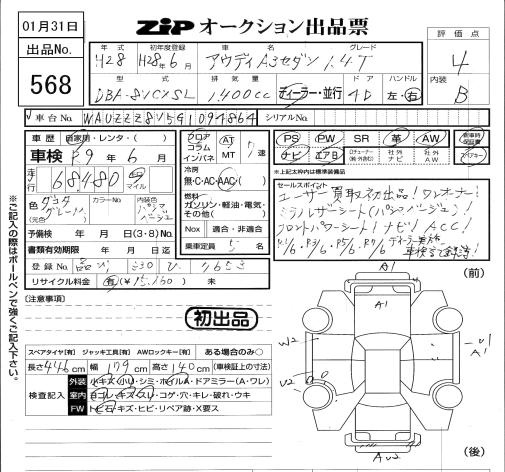 01月31日
出品No.
568
ZIP オークション出品票
評価点
4
内装
B
年式 初年度登録 車名 グレード
H28 H28年6月 アウディA3セダン 1.4T
型式 排気量 ドア ハンドル
DBA-8VCXSL 1,400cc ディーラー・並行 4D 左・右
車台No. WAUZZZ8V5G1094864 シリアルNo.
車歴 自家用・レンタ・( )
車検 R9年6月
走行 68,480 km マイル
色 (元色) カラーNo. 内装色
予備検 年 月 日(3・8)No.
書類有効期限 年 月 日
登録No. 330 ひ
リサイクル料金 有(¥15,160) 未
フロア コラム インパネ AT MT 7速
冷房
無・C・AC・AAC
燃料
ガソリン・軽油・電気・その他( )
Nox 適合・非適合
乗車定員 5名
PS PW SR 革 AW
ナビ エアB 社外ナビ 社外AW
新車時保証書
スペアキー
*上記太枠内は標準装備品
セールスポイント
ユーザー買取初出品!ワンオーナー!
ミラノレザーシート(パシュバージュ)!
フロントパワーシート!ナビ!ACC!
R1/6 R3/6 R5/6 R7/6 ディーラー実施
[注意事項]
初出品
スペアタイヤ[有] ジャッキ工具[有] AWロックキー[有] ある場合のみ○
長さ446cm 幅179cm 高さ140cm (車検証上の寸法)
検査記入
外装 小キズ・小U・シミ・ホイルA・ドアミラー(A・ワレ)
室内 ヨゴレ・キズ・スレ・コゲ・穴・キレ・破れ・ウキ
FW トビ石・キズ・ヒビ・リペア跡・X要ス
(前)
A1
A1
W2
U2
A1
AU2
(後)
※ご記入の際はボールペンで強くご記入下さい。